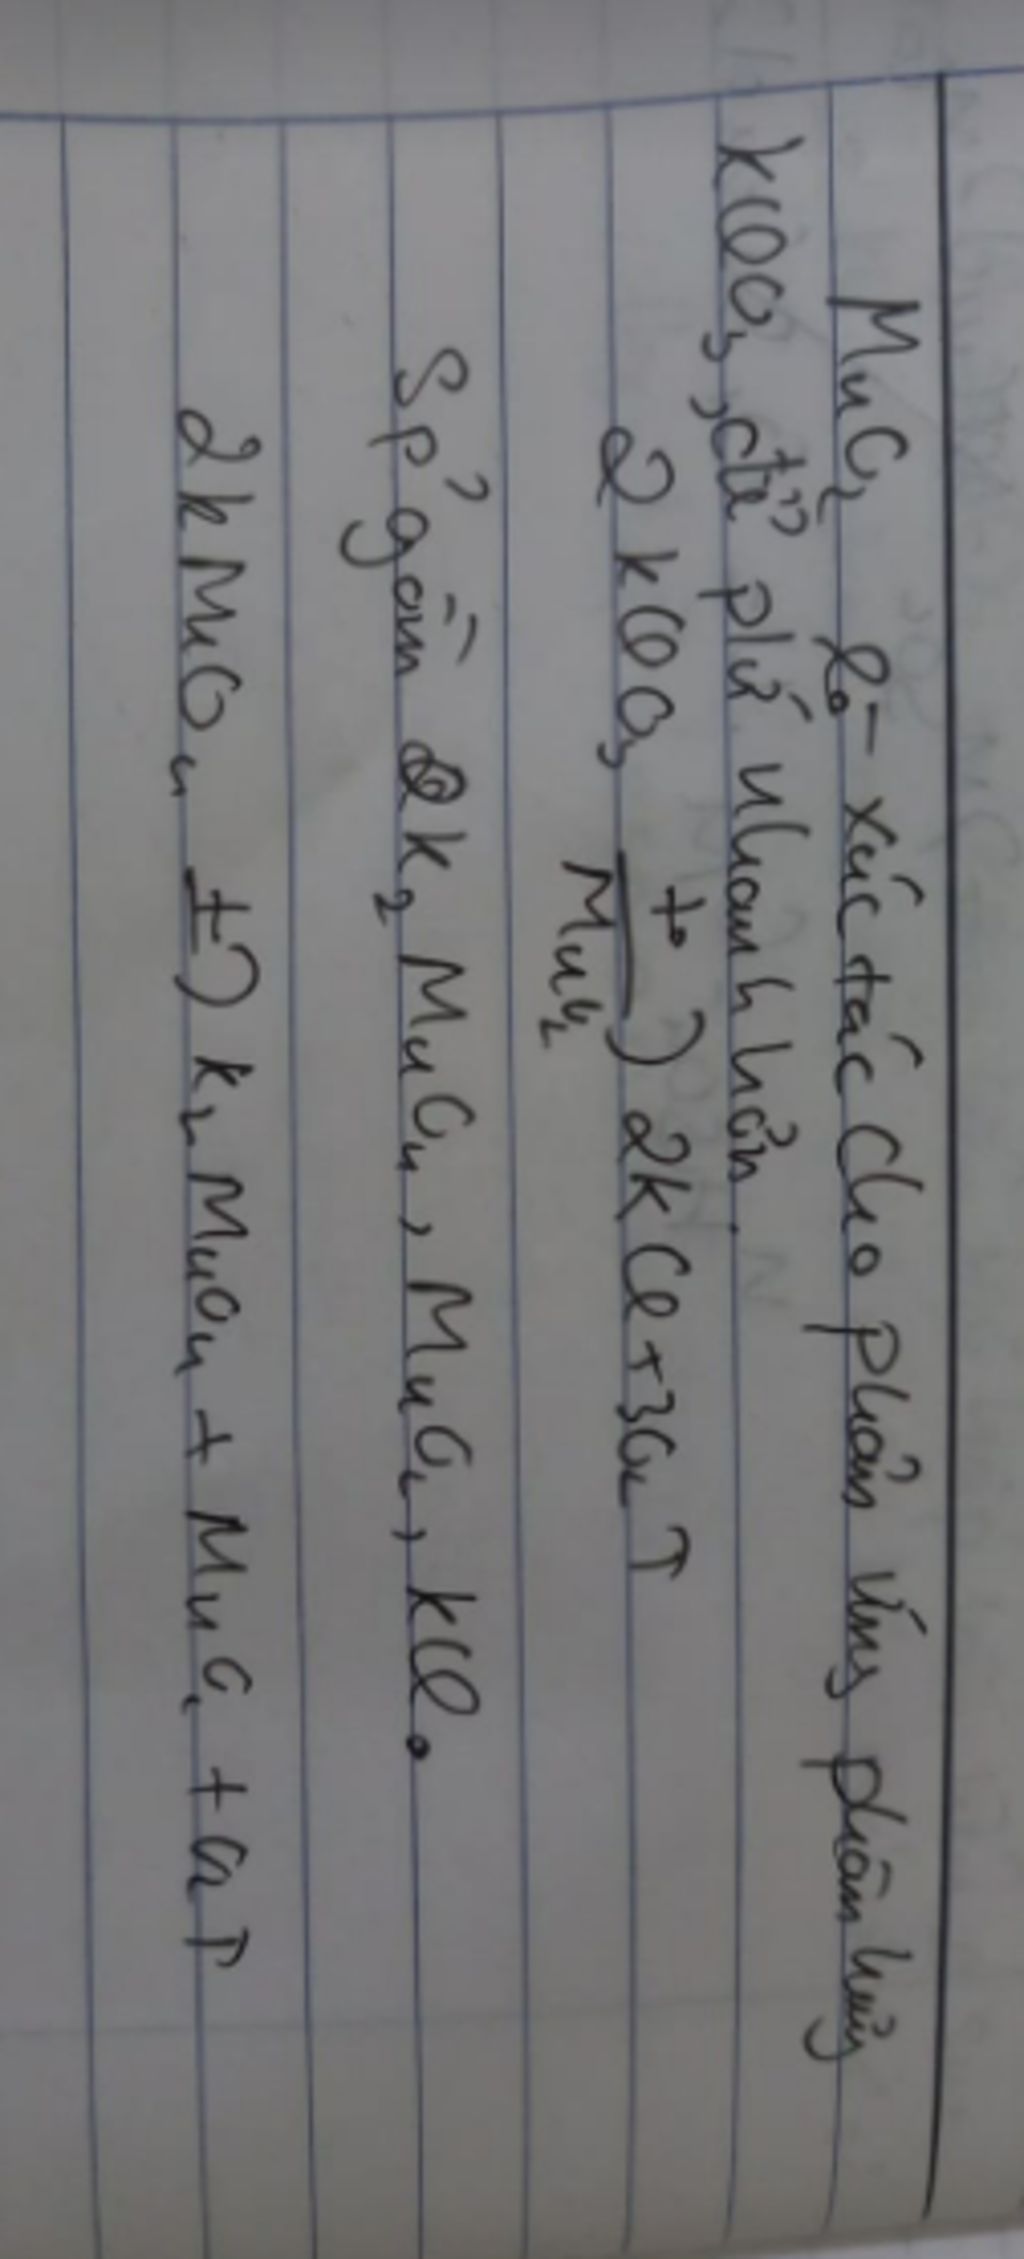 MnO₂ là xúc tác cho phản ứng phân huỷ
KClO₃, để pứ nhanh hơn.
2KClO₃ →(t°, MnO₂) 2KCl + 3O₂↑
Sp' gồm K₂MnO₄, MnO₂, KCl.
2KMnO₄ →(t°) K₂MnO₄ + MnO₂ + O₂↑